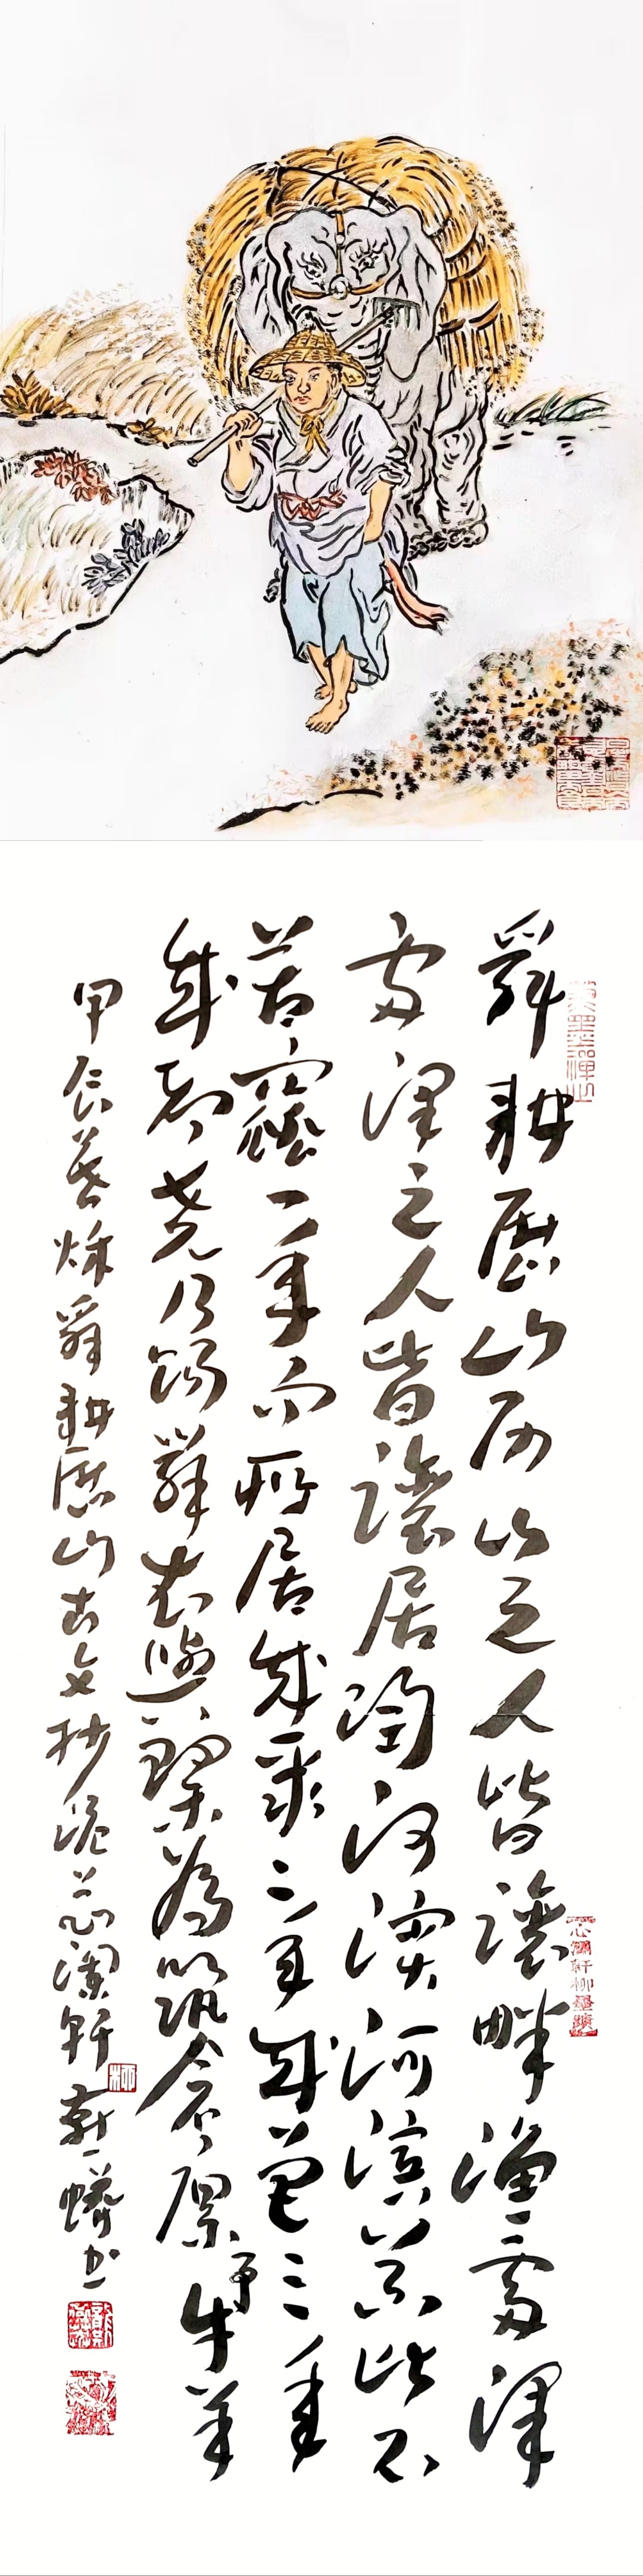 舜耕歷山历山之人皆讓畔漁雷澤
雷澤之人皆讓居陶河濱河濱器皆不
苦窳一年而所居成聚二年成邑三年
成都堯乃賜舜衣與琴為築倉廩予牛羊
甲辰秌舜耕歷山古文抄於芯瀾軒書
柳